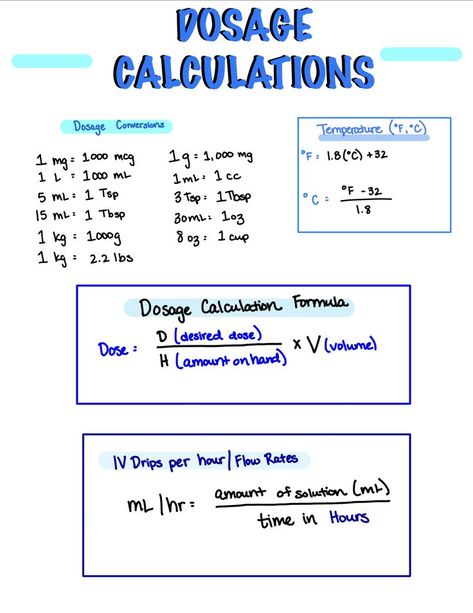 DOSAGE
CALCULATIONS
Dosage Conversions
1 mg = 1000 mcg
1 L = 1000 mL
5 mL = 1 Tsp
15 mL = 1 Tbsp
1 kg = 1000g
1 kg = 2.2 lbs
1g = 1,000 mg
1mL = 1 cc
3 Tsp = 1 Tbsp
30mL = 1oz
8 oz = 1 cup
Temperature (°F, °C)
°F = 1.8(°C) +32
°C = °F -32
1.8
Dosage Calculation Formula
Dose = D (desired dose) x V (volume)
H (amount on hand)
IV Drips per hour/Flow Rates
mL/hr = amount of solution (mL)
time in Hours